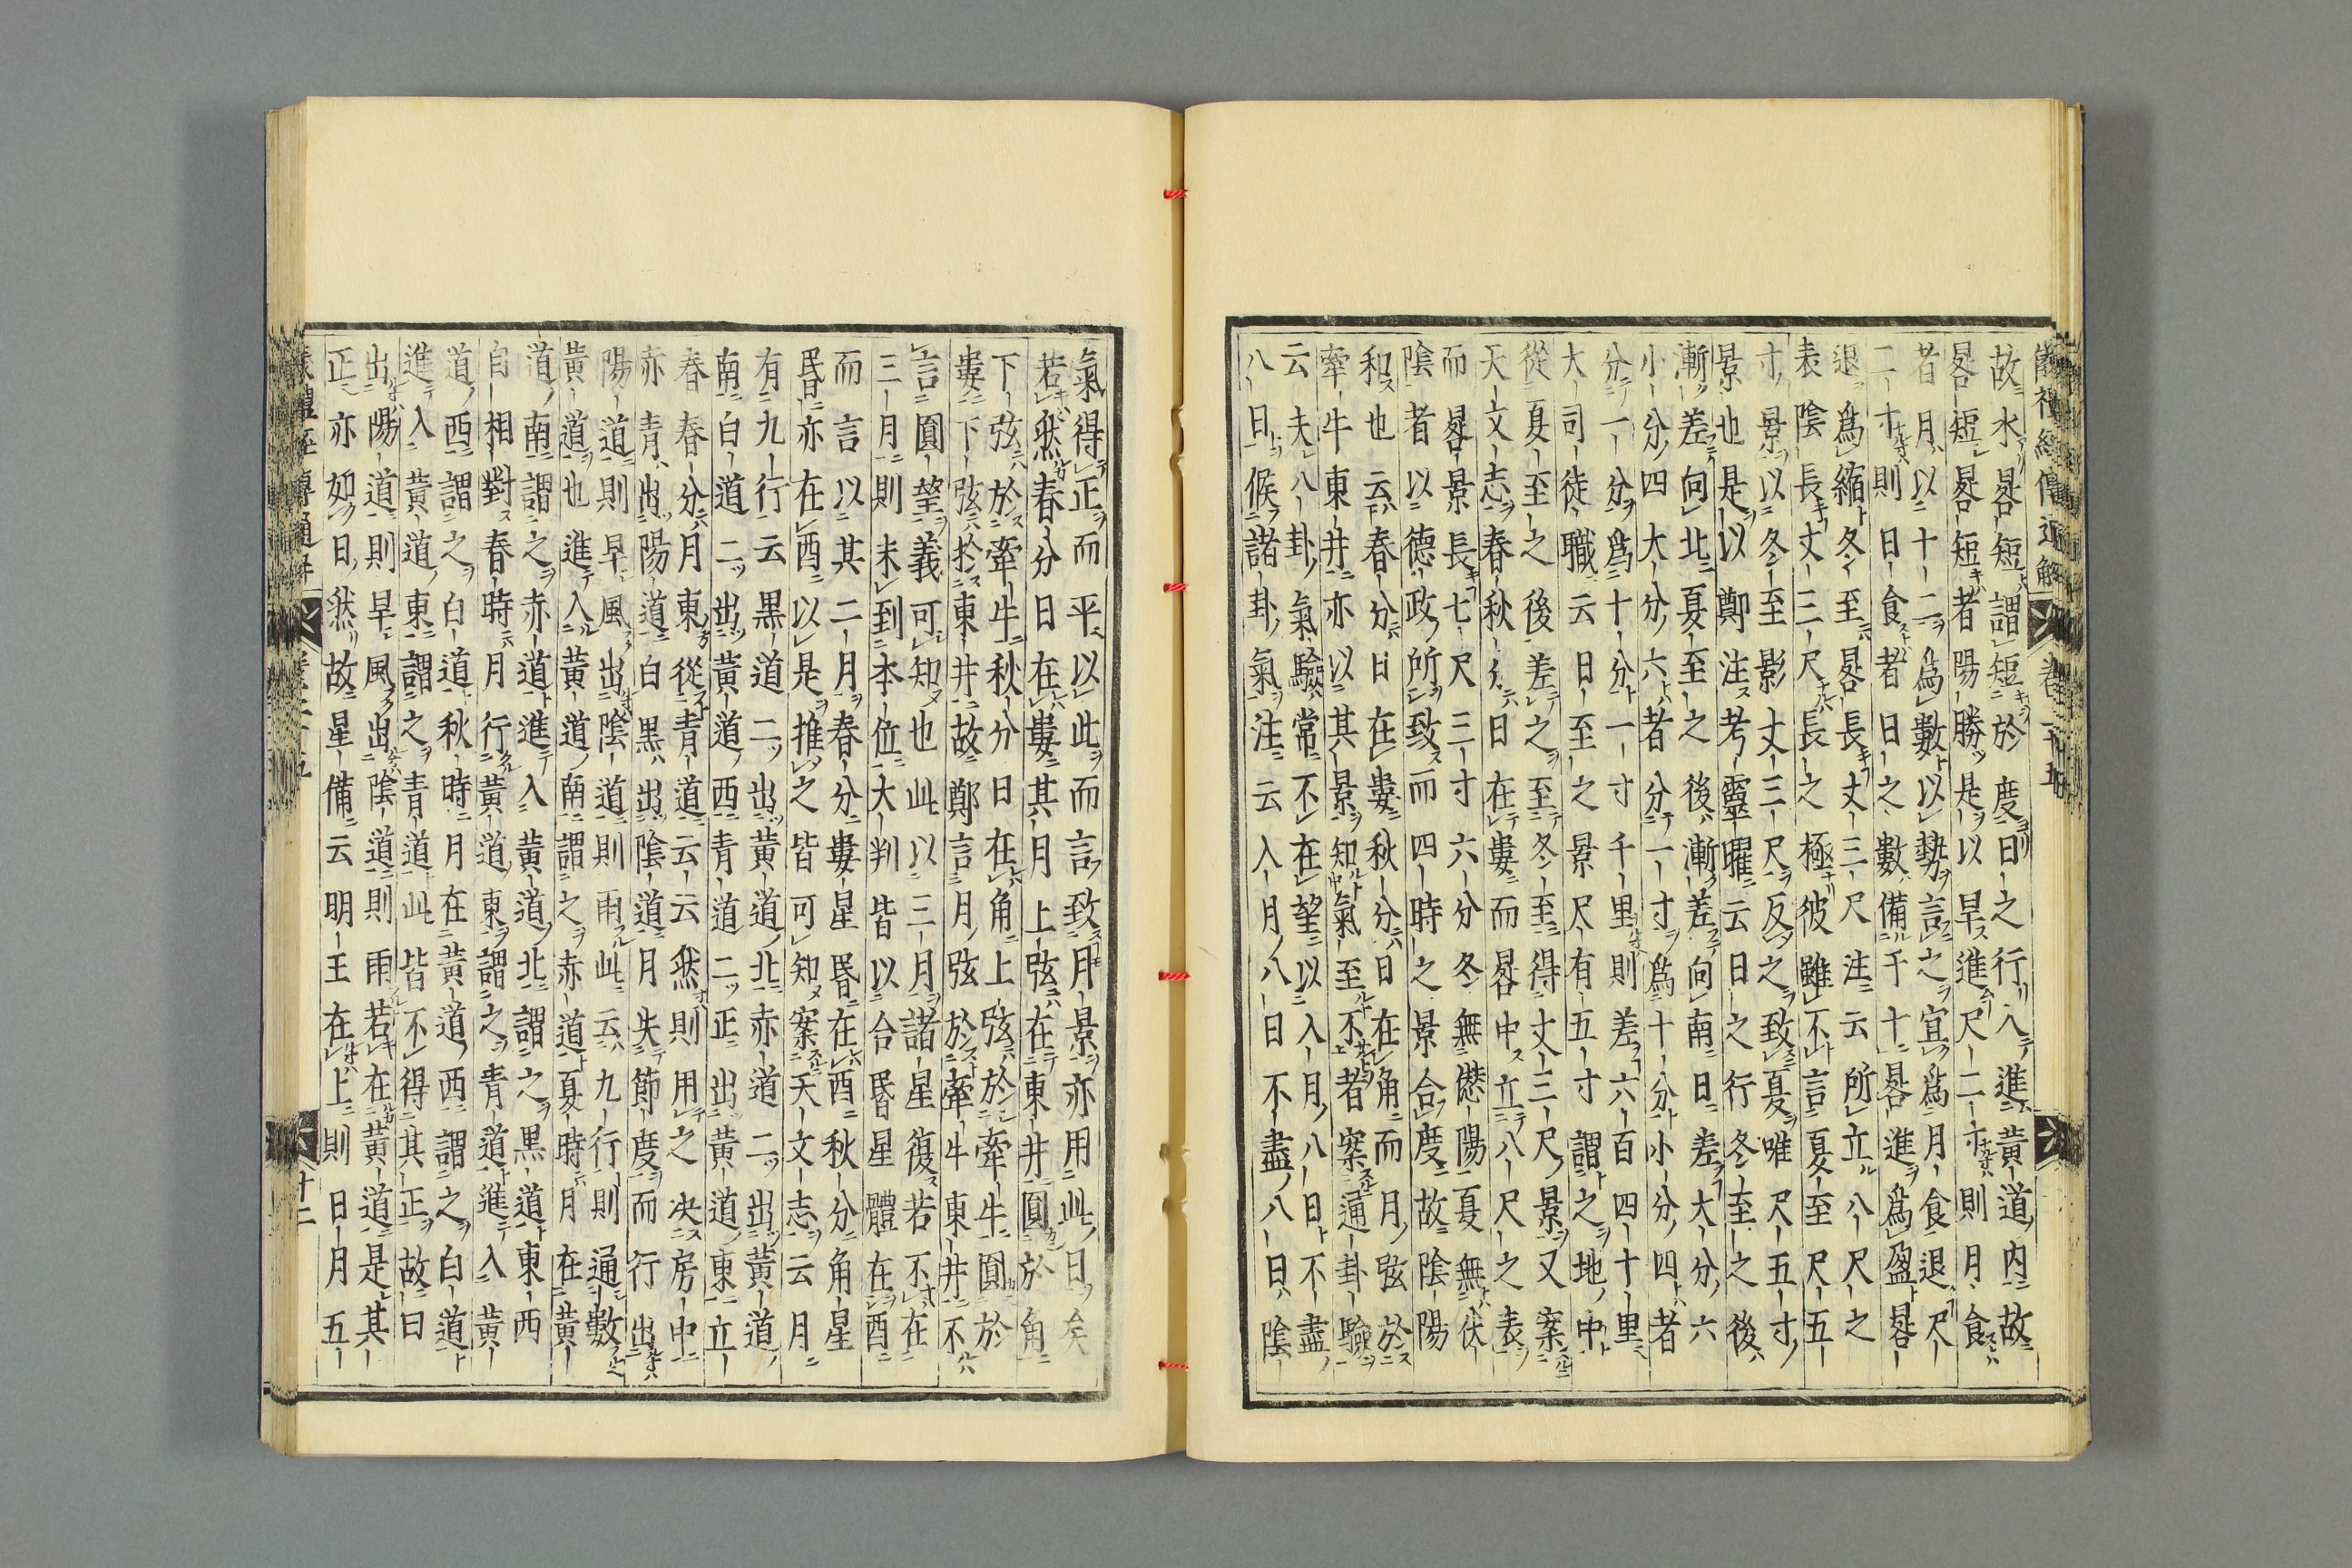 儀禮經傳通解 卷二十五
故水晷短謂短於度日之行入進黃道內故
晷短晷短者陽勝是以旱進尺二寸則月食
者月以十二爲數以勢言之宜爲月食退尺
二寸則日食者日之數備于十晷進爲盈晷
退爲縮冬至晷長丈三尺注云所立八尺之
表陰長丈三尺長之極彼雖不言夏至尺五
寸景以冬至影丈三尺反之致夏唯尺五寸
景也是以鄭注考靈曜云日之行冬至之後
漸差向北夏至之後漸差向南日差大分六
小分四大分六者分一寸爲十分小分四者
分一分爲十分一寸千里則差六百四十里
大司徒職云日至之景尺有五寸謂之地中
從夏至之後差之至冬至得丈三尺景又案
天文志春秋分日在婁而晷中立八尺之表
而晷景長七尺三寸六分冬無愆陽夏無伏
陰者以德政所致而四時之景合度故陰陽
和也云春分日在婁秋分日在角而月弦於
牽牛東井亦以其景知氣至不者案通卦驗
云夫八卦氣驗常不在望以入月八日不盡
八日候諸卦氣注云入月八日不盡八日陰
氣得正而平以此而言致月景亦用此日矣
若然春分日在婁其月上弦在東井圓於角
下弦於牽牛秋分日在角上弦於牽牛圓於
婁下弦於東井故鄭言月弦於牽牛東井不
言圓望義可知也此以三月諸星復若不在
三月則未到本位大判皆以合昏星體在酉
而言以其二月春分婁星昏在酉秋分角星
昏亦在酉以是推之皆可知案天文志云月
有九行云黑道二出黃道北赤道二出黃道
南白道二出黃道西青道二正出黃道東立
春春分月東從青道云云然則用之决房中
赤青出陽道白黑出陰道月失節度而行出
陽道則旱風出陰道則雨此云九行則通數
黃道也進入黃道南謂之赤道夏時月在黃
道南謂之赤道進入黃道北謂之黑道東西
自相對春時月行黃道東謂之青道進入黃
道西謂之白道秋時月在黃道西謂之白道
進入黃道東謂之青道此皆不得其正故曰
出陽道則旱風出陰道則雨若在黃道是其
正亦如日然故星備云明王在上則日月五
十二